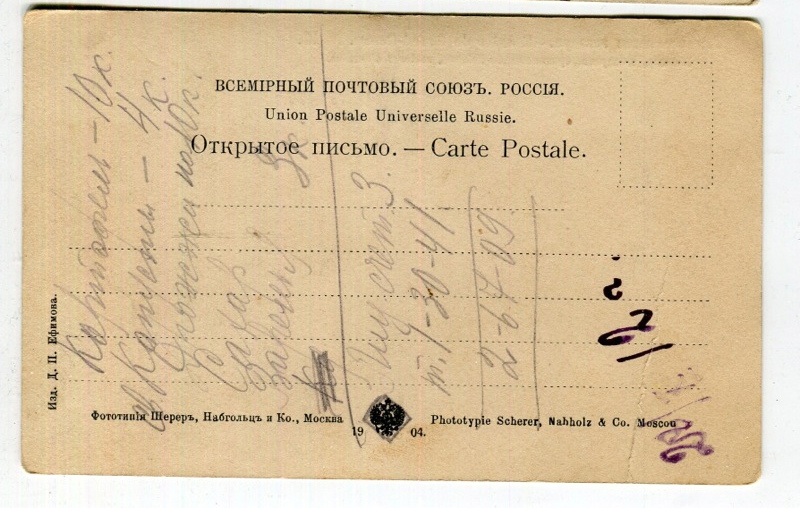 ВСЕМІРНЫЙ ПОЧТОВЫЙ СОЮЗЪ. РОССІЯ.
Union Postale Universelle Russie.
Открытое письмо. — Carte Postale.
Изд. Д. П. Ефимова.
Фототипія Шереръ, Набгольцъ и Ко., Москва
1904.
Phototypie Scherer, Nabholz & Co. Moscou
Картофель – 10 к.
– 4 к.
на 10 к.
Сахар
3 к.
счет 3.
т. 1-30-41
2-67-09